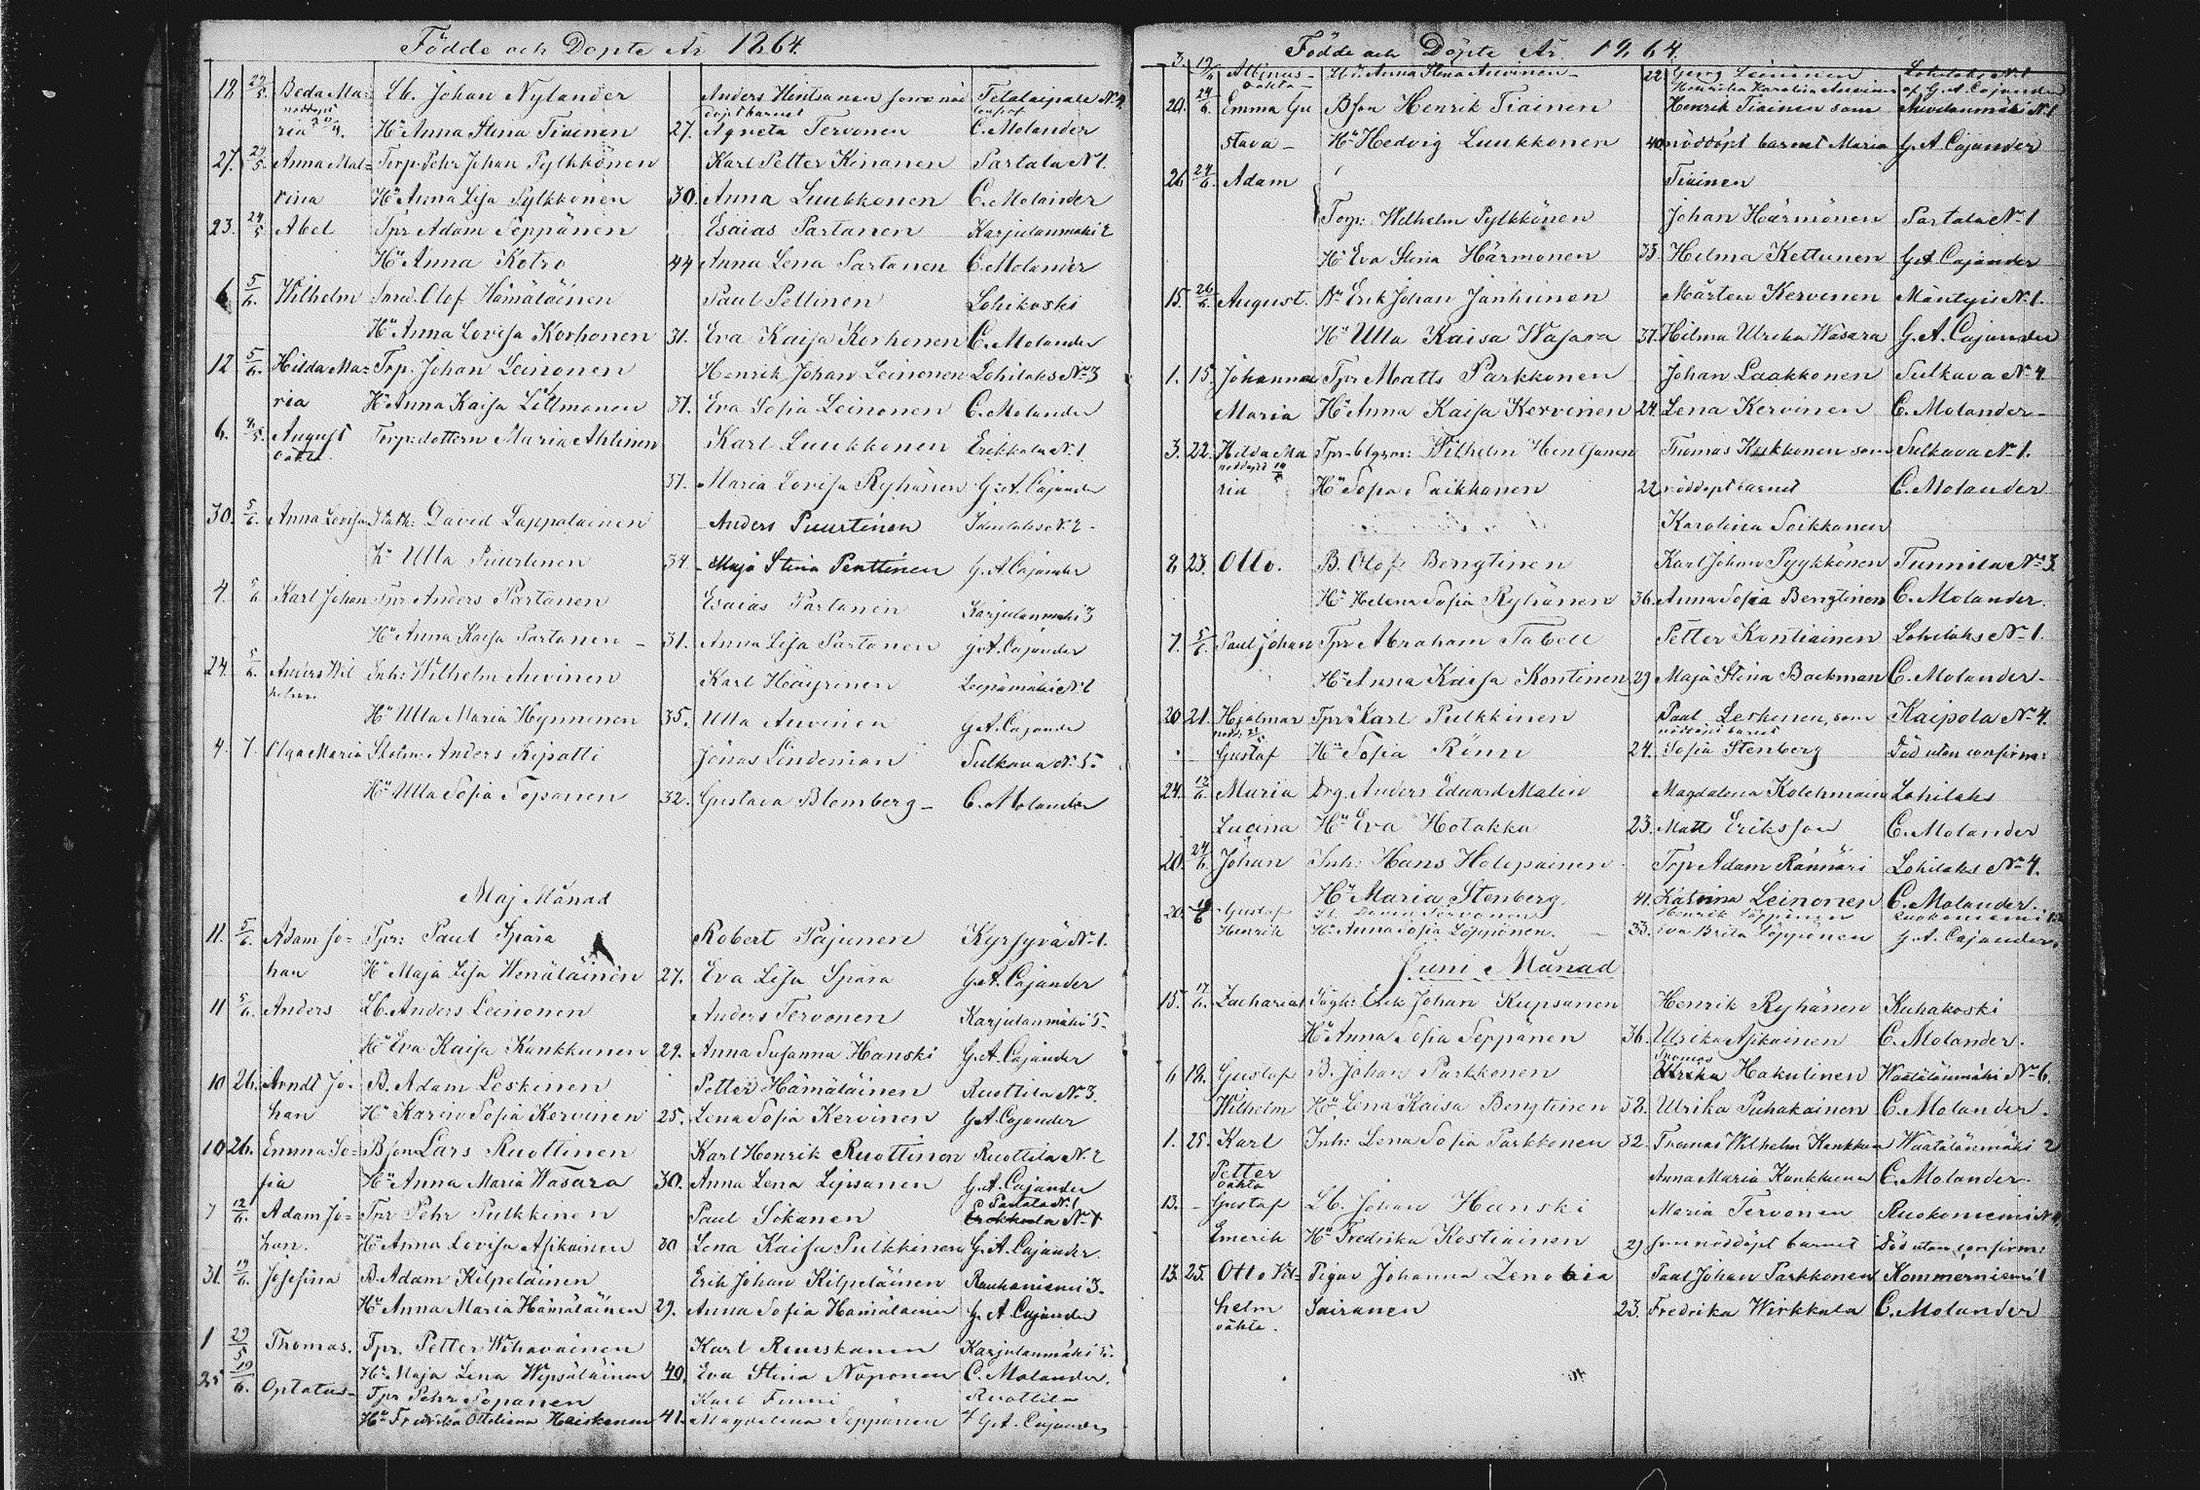 Födde och Döpte År 1864
18 29/5. Beda Ma= Lb. Johan Nylander Anders Hintsanen som nöd N 4
nöddöpt döpt barnet
ria Hu Anna Stina Tiainen 27. Agneta Tervonen C. Molander
27. 29/5. Anna Mat= Torp. Pehr Johan Pylkkönen Karl Petter Kinanen Partala N 1.
rina Hu Anna Lisa Pylkkönen 30. Anna Luukkonen C. Molander
23. 29/5 Abel Tpr Adam Seppänen Esaias Partanen Karjulanmäki 2
Hu Anna Kotro 44 Anna Lena Partanen C. Molander
6 5/6. Wilhelm Smed. Olof Hämäläinen Paul Pellinen Lohikoski
Hu Anna Lovisa Korhonen 31. Eva Kaisa Korhonen C. Molander
12 5/6. Hilda Ma= Trp. Johan Leinonen Henrik Johan Leinonen Lohilaks No 3
ria Hu Anna Kaisa Littmanen 37. Eva Sofia Leinonen C. Molander
6. August Torp: dottern Maria Ahtinen Karl Luukkonen Erikkala N 1
oäkta
37. Maria Lovisa Ryhänen G. A. Cajander
30. 5/6. Anna Lovisa David Lappalainen Anders Puurtinen N 2
Hu Ulla Puurtinen 34 Maja Stina Penttinen G. A. Cajander
4. 5/6 Karl Johan Tpr Anders Partanen Esaias Partanen Karjulanmäki 3
Hu Anna Kaisa Partanen 31. Anna Lisa Partanen G. A. Cajander
24. 5/6. Anders Wil Inh: Wilhelm Auvinen Karl Häyrinen Leipämäki N 1
helm
Hu Ulla Maria Hynninen 35. Ulla Auvinen G. A. Cajander
4. 7. Olga Maria Anders Kipatti Jonas Lindeman Sulkava N. 5.
Hu Ulla Sofia Toponen 32. Gustava Blomberg C. Molander
Maj Månad
11. 5/6. Adam Jo= Tpr: Paul Spåra Robert Pajunen Kyrsyvä N 1.
han Hu Maja Lisa Wenäläinen 27. Eva Lisa Spåra G. A. Cajander
11 5/6. Anders Lb. Anders Leinonen Anders Tervonen Karjulanmäki 5
Hu Eva Kaisa Kankkunen 29. Anna Susanna Hanski G. A. Cajander
10 26. Arndt Jo. B. Adam Leskinen Petter Hämäläinen Ruottila No 3.
han Hu Karin Sofia Kervinen 25. Lena Sofia Kervinen G. A. Cajander
10 26. Emma So= Bson Lars Ruottinen Karl Henrik Ruottinen Ruottila N. 2
fia Hu Anna Maria Wasara 30. Anna Lena Lipsanen G. A. Cajander
Partala N. 1
7 12/6. Adam Jo= Tpr Pehr Pulkkinen Paul Sokanen Erikkala N 1
han. Hu Anna Lovisa Asikainen 30 Lena Kaisa Pulkkinen G. A. Cajander.
31. 19/6. Josefina B. Adam Kilpeläinen Erik Johan Kilpeläinen Rauhaniemi 3.
Hu Anna Maria Hämäläinen 29. Anna Sofia Hämäläinen G. A. Cajander
1 29/5 Thomas. Tpr. Petter Wihavainen Karl Reuskanen Karjulanmäki 5.
Hu Maja Lena Wepsäläinen 49. Eva Stina Noponen C. Molander.
25 19/6. Optatus Tpr Pehr Topanen Karl Finni Ruottila
Hu Fredrika Ottiliana Heiskanen 41. Magdalena Seppänen af G. A. Cajander
Födde och Döpte År 1864.
3. 19/6 Albinus Anna Stina Auvinen 22 Georg Leininen Lohilaks N 1
oäkta Henrika Karolina Auvinen af G. A. Cajander
20. 24/6. Emma Gu Bson Henrik Tiainen Henrik Tiainen som Auvilanmäki N 1
stava Hu Hedvig Luukkonen 40 nöddöpt barnet Maria G. A. Cajander
26. 24/6. Adam Tiainen
Torp: Wilhelm Pylkkönen Johan Härmönen Partala No 1
Hu Eva Stina Härmönen 33. Helma Kettunen G. A. Cajander
15. 26/6. August. Nr Erik Johan Janhunen Mårten Kervinen Mäntyis N. 1.
Hu Ulla Kaisa Wasara 37. Hilma Ulrika Wasara G. A. Cajander
1. 15. Johanna Tpr Matts Parkkonen Johan Laakkonen Sulkava No 4
Maria Hu Anna Kaisa Kervinen 24. Lena Kervinen C. Molander
3. 22. Hilda Ma Wilhelm Hintsanen Thomas Kukkonen som Sulkava No 1.
nöddöpt
ria Hu Sofia Paikkanen 22 nöddöpt barnet C. Molander
Karolina Soikkanen
8 23. Otto. B. Olof Bengtinen Karl Johan Pyykkönen Tunnila No 3.
Hu Helena Sofia Ryhänen 36. Anna Sofia Bengtinen C. Molander.
7. 5/6. Paul Johan Tpr Abraham Tabell Petter Kontiainen Lohilaks No 1.
Hu Anna Kaisa Kontinen 29 Maja Stina Backman C. Molander
20 21. Hjalmar Tpr Karl Pulkkinen Paul Lerkinen, som Kaipola No 4.
nöddöpt barnet
Gustaf Hu Sofia Rönn 24. Sofia Stenberg Död utan confirm:
24. 12/6 Maria Drg. Anders Eduard Malin Magdalena Kolehmain Lohilaks
Lucina Hu Eva Hotakka 23. Matts Eriksson C. Molander
20. 24/6. Johan Inh: Hans Holopainen Trp Adam Rännäri Lohilaks No 4.
Hu Maria Stenberg 41. Katrina Leinonen C. Molander.
20. Gustaf Henrik Löppönen
Henrik Hu Anna Sofia Löppönen. 33. Eva Brita Löppönen G. A. Cajander.
Juni Månad
15. 17/6. Zacharias Erik Johan Kupsanen Henrik Ryhänen Kuhakoski
Hu Anna Sofia Seppänen 36. Ulrika Asikainen C. Molander.
Thomas
6 12. Gustaf B. Johan Parkkonen Ulrika Hakulinen Waatalanmäki No 6.
Wilhelm Hu Lena Kaisa Bengtinen 32. Ulrika Puhakainen C. Molander.
1. 25. Karl Inh: Lena Sofia Parkkonen 32. Thomas Wilhelm Kankkun Waatalanmäki 2
Petter Anna Maria Kankkunen C. Molander
oäkta
13. Gustaf Lb. Johan Hanski Maria Tervonen Ruokoniemi N 4
Emerik Hu Fredrika Kostiainen 29 som nöddöpt barnet Död utan confirm:
13. 25. Otto Vil= Pigan Johanna Zenobia Paul Johan Parkkonen Kommerniemi 1
helm Sairanen 23. Fredrika Wirkkala C. Molander
oäkta.